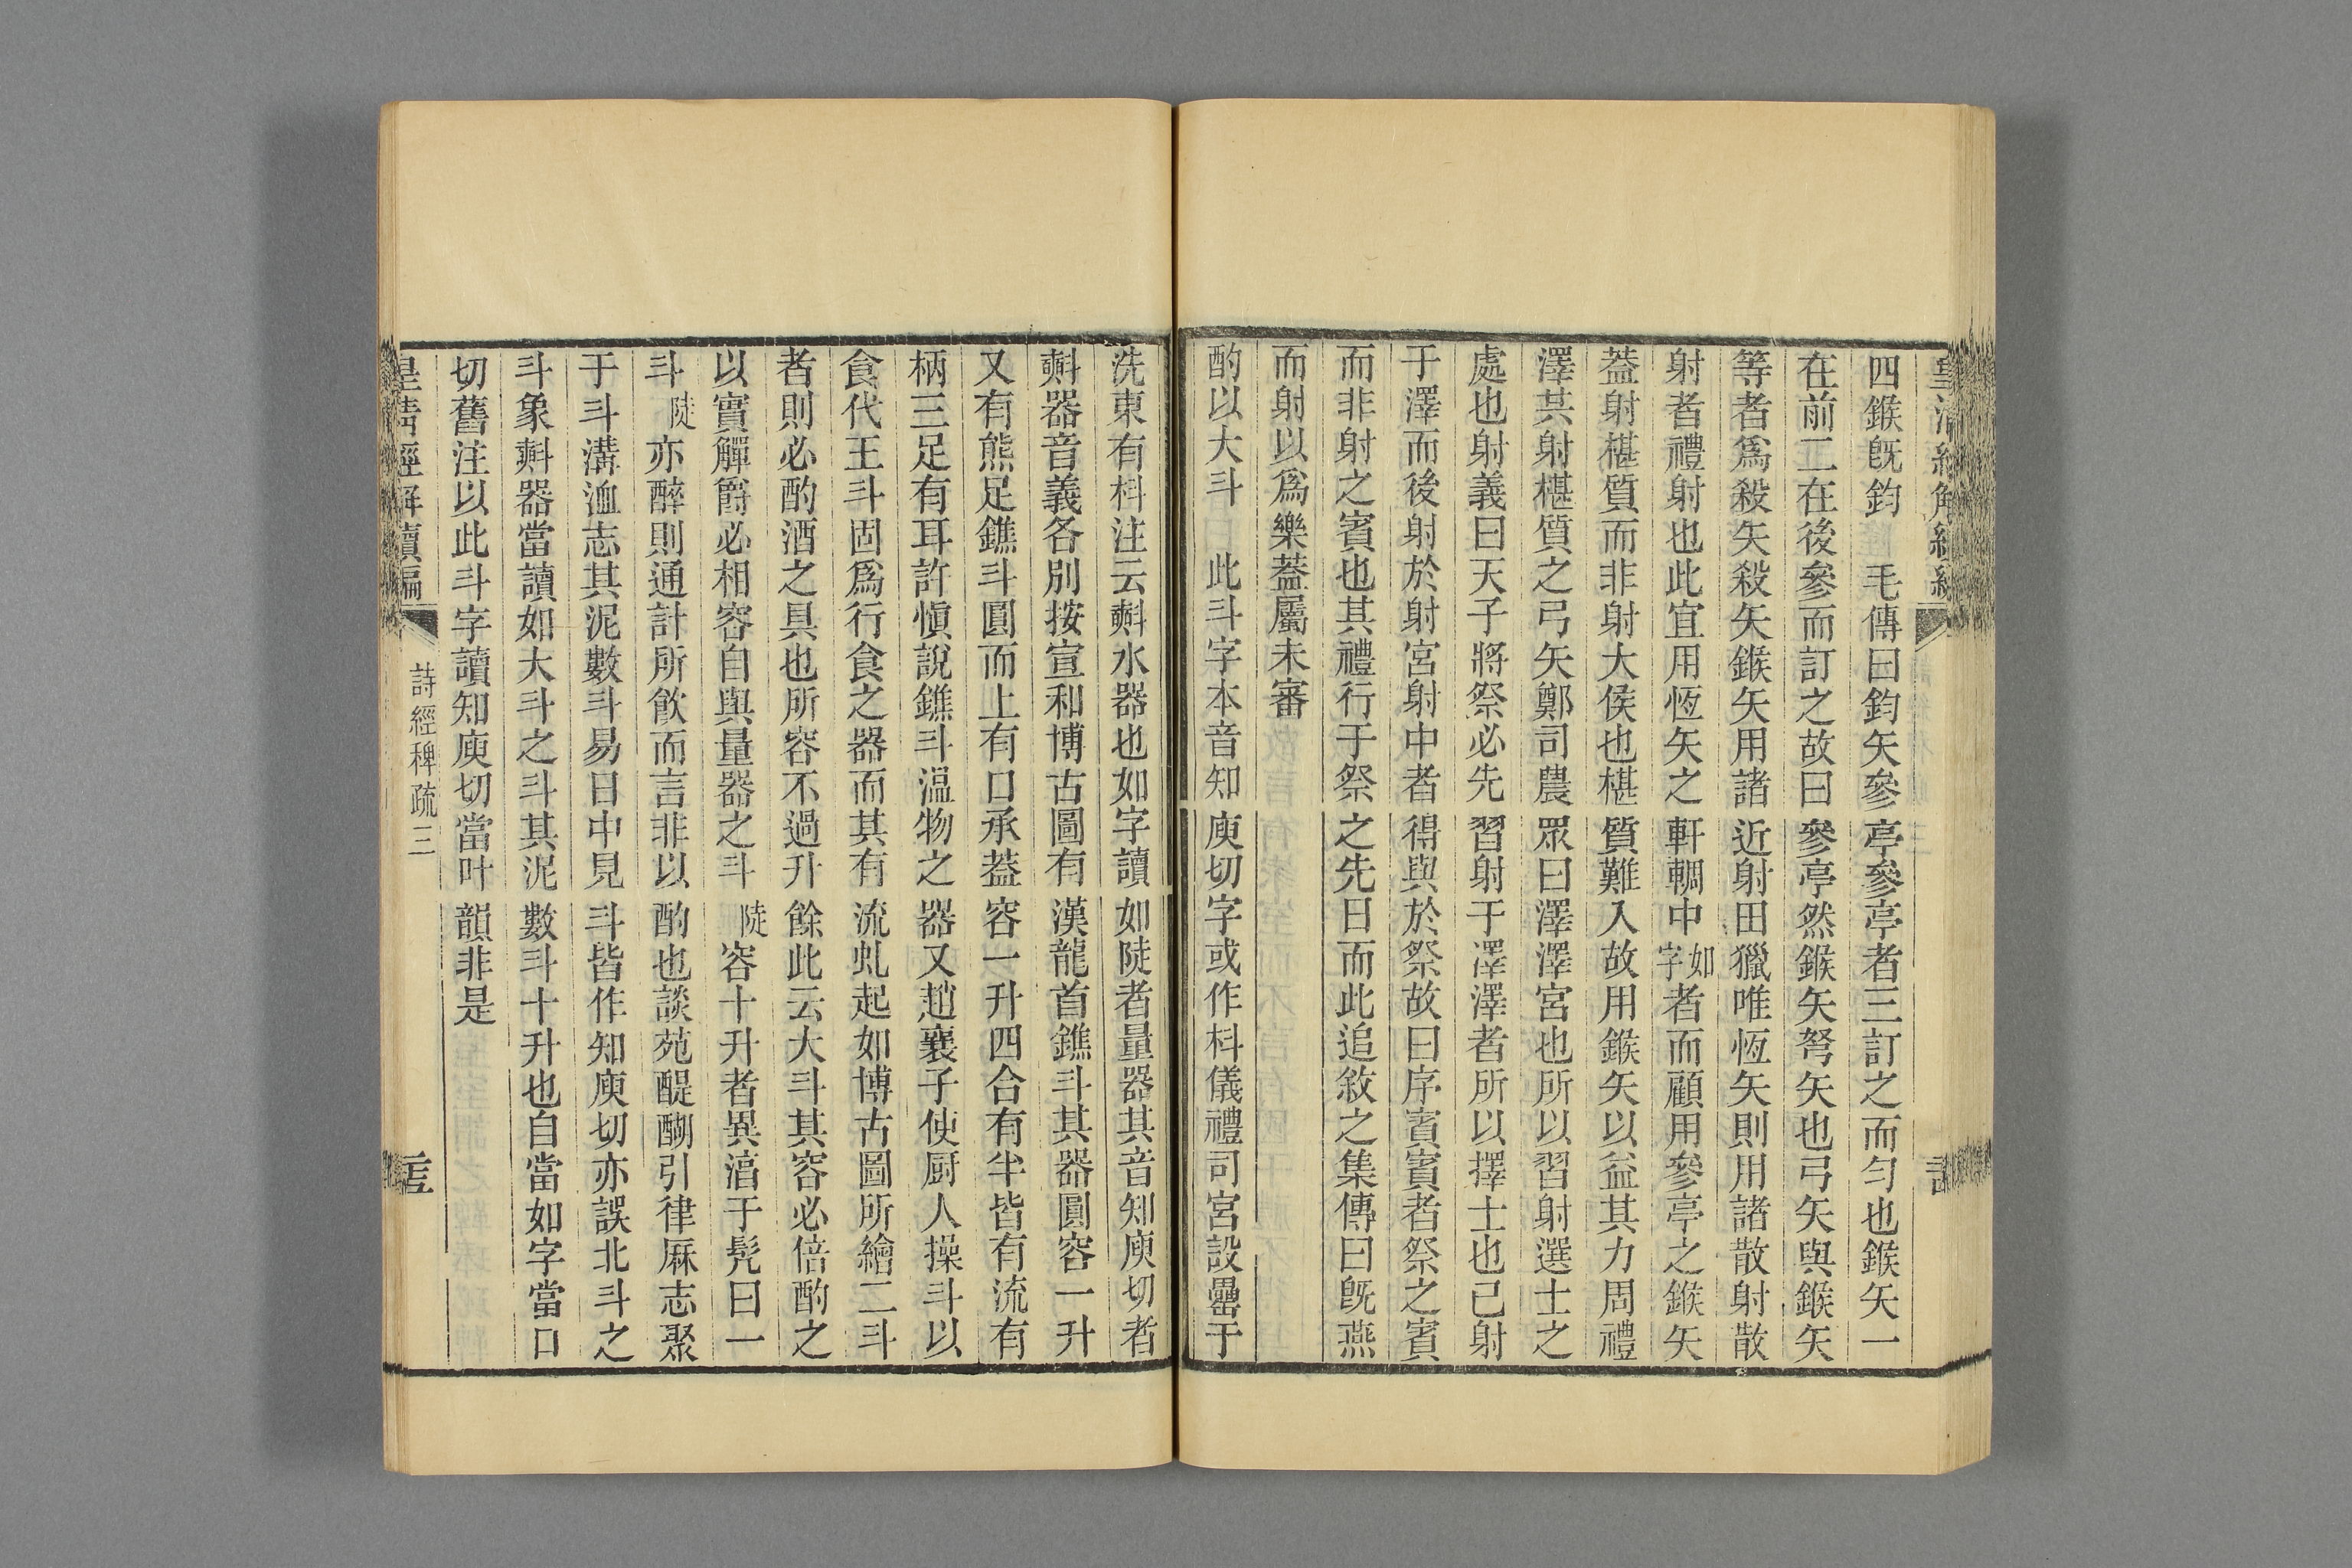 四鍭旣鈞　毛傳曰鈞矢參亭參亭者三訂之而勻也鍭矢一
在前二在後參而訂之故曰參亭然鍭矢弩矢也弓矢與鍭矢
等者爲殺矢殺矢鍭矢用諸近射田獵唯恆矢則用諸散射散
射者禮射也此宜用恆矢之軒輖中如字者而顧用參亭之鍭矢
蓋射椹質而非射大侯也椹質難入故用鍭矢以益其力周禮
澤其射椹質之弓矢鄭司農眾曰澤澤宮也所以習射選士之
處也射義曰天子將祭必先習射于澤澤者所以擇士也已射
于澤而後射於射宮射中者得與於祭故曰序賓賓者祭之賓
而非射之賓也其禮行于祭之先日而此追敘之集傳曰旣燕
而射以爲樂蓋屬未審
酌以大斗　此斗字本音知庾切字或作枓儀禮司宮設罍于
洗東有枓注云㪺水器也如字讀如陡者量器其音知庾切者
㪺器音義各別按宣和博古圖有漢龍首鐎斗其器圓容一升
又有熊足鐎斗圓而上有口承蓋容一升四合有半皆有流有
柄三足有耳許愼說鐎斗溫物之器又趙襄子使厨人操斗以
食代王斗固爲行食之器而其有流虬起如博古圖所繪二斗
者則必酌酒之具也所容不過升餘此云大斗其容必倍酌之
以實觶爵必相容自與量器之斗陡容十升者異湻于髠曰一
斗陡亦醉則通計所飮而言非以酌也談苑醍醐引律厤志聚
于斗溝洫志其泥數斗易日中見斗皆作知庾切亦誤北斗之
斗象㪺器當讀如大斗之斗其泥數斗十升也自當如字當口
切舊注以此斗字讀知庾切當叶韻非是
皇淸經解續編
詩經稗疏三